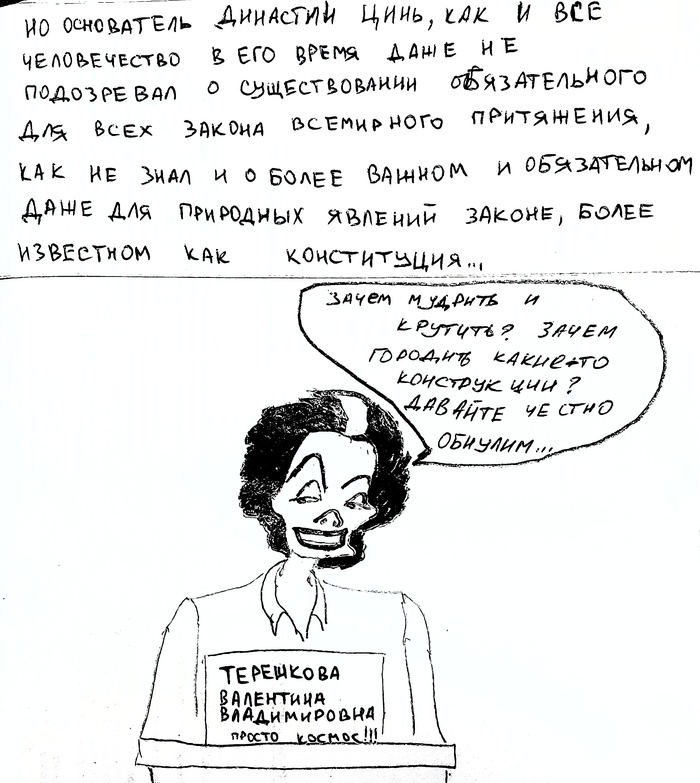 НО ОСНОВАТЕЛЬ ДИНАСТИИ ЦИНЬ, КАК И ВСЕ
ЧЕЛОВЕЧЕСТВО В ЕГО ВРЕМЯ ДАЖЕ НЕ
ПОДОЗРЕВАЛ О СУЩЕСТВОВАНИИ ОБЯЗАТЕЛЬНОГО
ДЛЯ ВСЕХ ЗАКОНА ВСЕМИРНОГО ПРИТЯЖЕНИЯ,
КАК НЕ ЗНАЛ И О БОЛЕЕ ВАЖНОМ И ОБЯЗАТЕЛЬНОМ
ДАЖЕ ДЛЯ ПРИРОДНЫХ ЯВЛЕНИЙ ЗАКОНЕ, БОЛЕЕ
ИЗВЕСТНОМ КАК КОНСТИТУЦИЯ...
ЗАЧЕМ МУДРИТЬ И
КРУТИТЬ? ЗАЧЕМ
ГОРОДИТЬ КАКИЕ-ТО
КОНСТРУКЦИИ?
ДАВАЙТЕ ЧЕСТНО
ОБНУЛИМ...
ТЕРЕШКОВА
ВАЛЕНТИНА
ВЛАДИМИРОВНА
ПРОСТО КОСМОС!!!